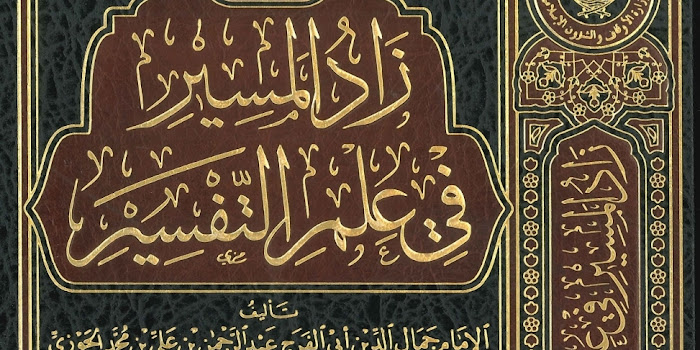 زَادُ المَسِيْرِ
فِي عِلْمِ التَّفْسِيْرِ
تأليف
الإمَام جَمَال الدِّين أبي الفَرَج عَبْد الرَّحمٰن بن عَلِيّ بن مُحَمَّد الجَوْزِيّ
وزارة الأوقاف والشؤون الإسلامية
زَادُ المَسِيْرِ فِي